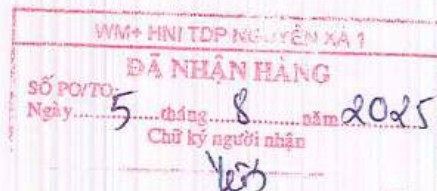 WM+ HNI TDP NGUYÊN XÁ 1
ĐÃ NHẬN HÀNG
SỐ PO/TO:
Ngày.....5.....tháng.....8.....năm 2025
Chữ ký người nhận